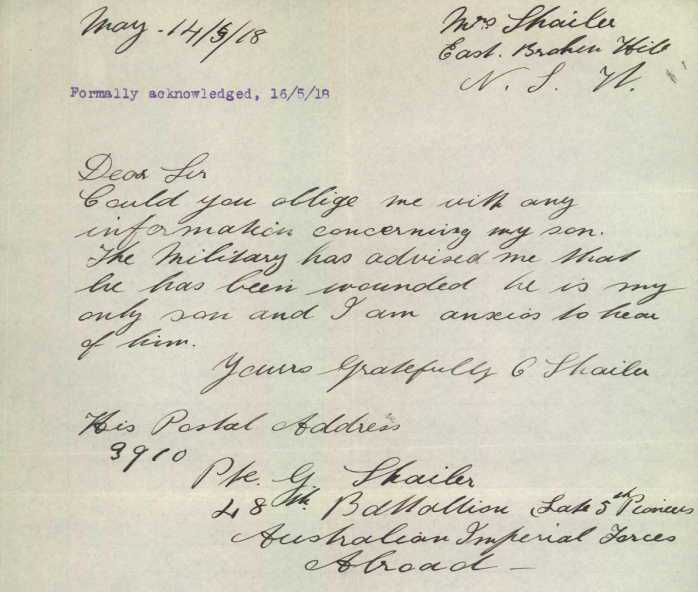 May - 14/5/18
Mrs Shailer
East. Broken Hill
N. S. W.
Formally acknowledged, 16/5/18
Dear Sir
Could you oblige me with any
information concerning my son.
The Military has advised me that
he has been wounded he is my
only son and I am anxios to hear
of him.
Yours Gratefully C Shailer
His Postal Address
3910
Pte. G Shailer
48th. Battallion Late 5th Pioneers
Australian Imperial Forces
Abroad -